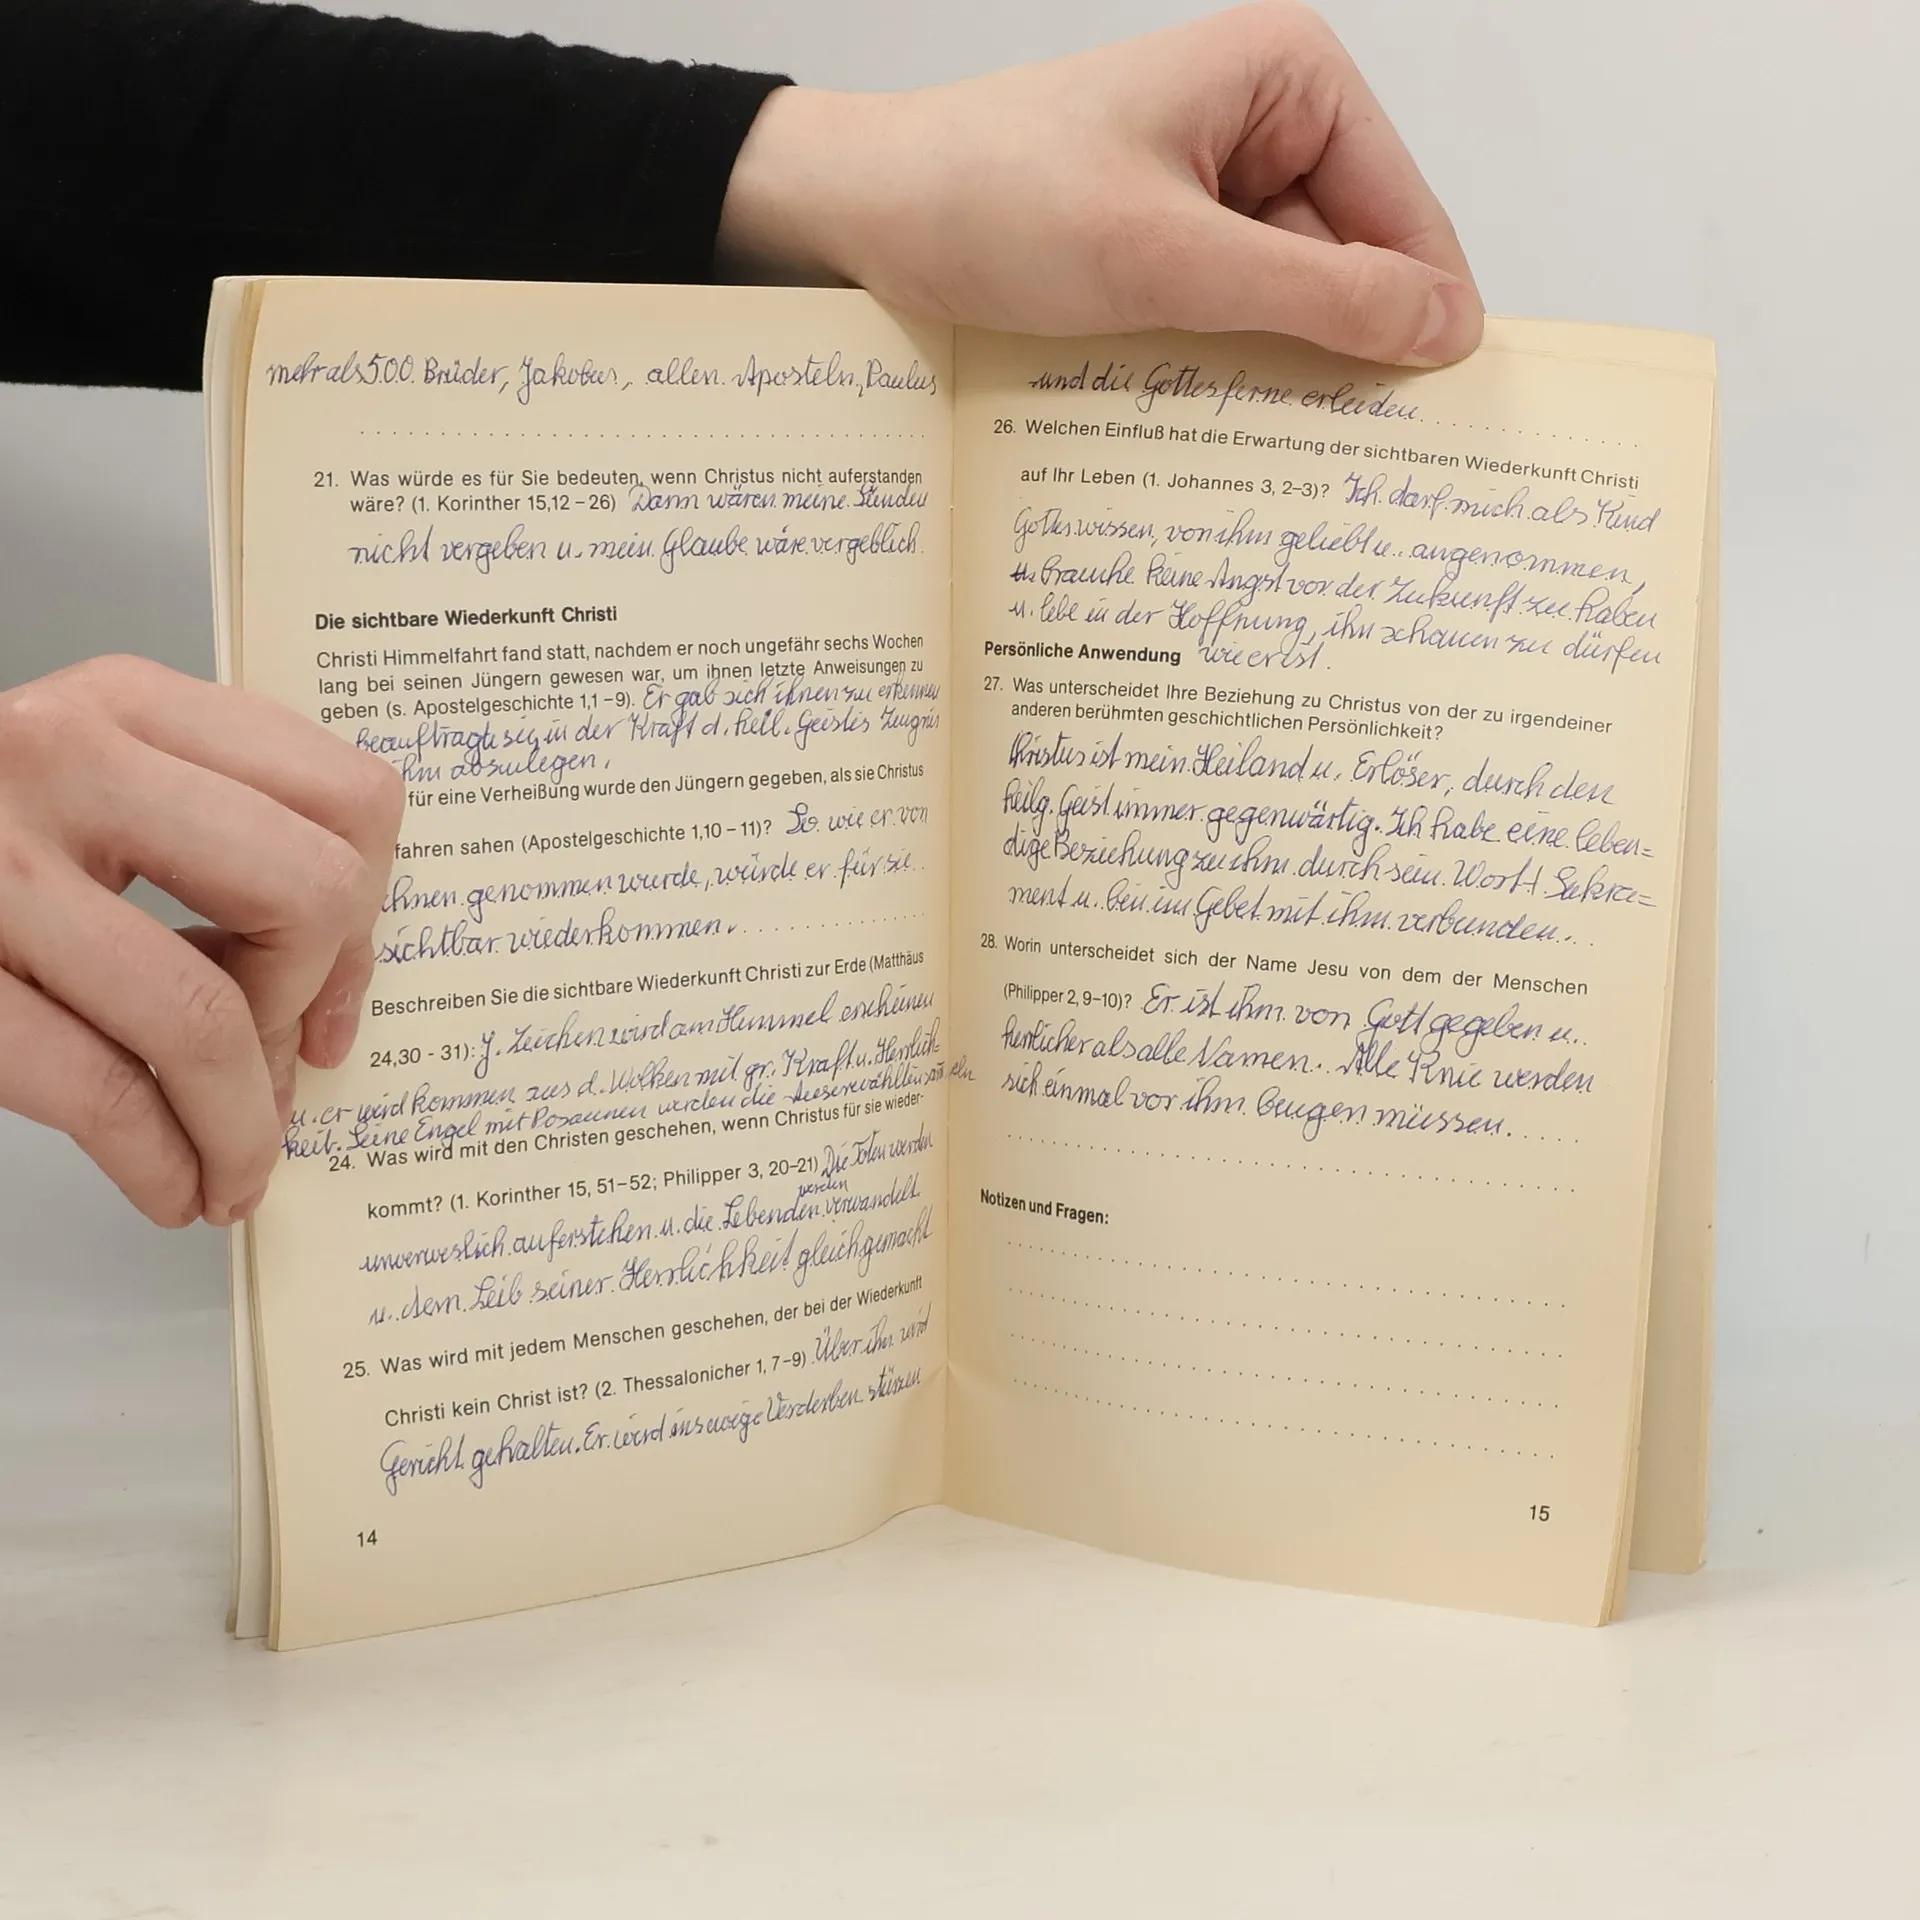 mehr als 500 Brüder, Jakobus, allen Aposteln, Paulus
21. Was würde es für Sie bedeuten, wenn Christus nicht auferstanden
wäre? (1. Korinther 15,12–26) Dann wären meine Sünden
nicht vergeben u. mein Glaube wäre vergeblich.
Die sichtbare Wiederkunft Christi
Christi Himmelfahrt fand statt, nachdem er noch ungefähr sechs Wochen
lang bei seinen Jüngern gewesen war, um ihnen letzte Anweisungen zu
geben (s. Apostelgeschichte 1,1–9). Er gab sich ihnen zu erkennen
beauftragte sie, in der Kraft d. heil. Geistes Zeugnis
ihm abzulegen.
für eine Verheißung wurde den Jüngern gegeben, als sie Christus
fahren sahen (Apostelgeschichte 1,10–11)? So wie er von
ihnen genommen wurde, würde er für sie
sichtbar wiederkommen.
Beschreiben Sie die sichtbare Wiederkunft Christi zur Erde (Matthäus
24,30 - 31): Zeichen wird am Himmel erscheinen
u. er wird kommen aus d. Wolken mit gr. Kraft u. Herrlich=
keit. Seine Engel mit Posaunen werden die Auserwählten
24. Was wird mit den Christen geschehen, wenn Christus für sie wieder-
kommt? (1. Korinther 15, 51–52; Philipper 3, 20–21) Die Toten werden
werden
unverweslich auferstehen u. die Lebenden verwandelt
u. dem Leib seiner Herrlichkeit gleichgemacht
25. Was wird mit jedem Menschen geschehen, der bei der Wiederkunft
Christi kein Christ ist? (2. Thessalonicher 1, 7–9) Über ihn wird
Gericht gehalten. Er wird ins ewige Verderben stürzen
14
und die Gottesferne erleiden
26. Welchen Einfluß hat die Erwartung der sichtbaren Wiederkunft Christi
auf Ihr Leben (1. Johannes 3, 2–3)? Ich darf mich als Kind
Gottes wissen, von ihm geliebt u. angenommen,
brauche keine Angst vor der Zukunft zu haben
u. lebe in der Hoffnung, ihn schauen zu dürfen
Persönliche Anwendung wie er ist.
27. Was unterscheidet Ihre Beziehung zu Christus von der zu irgendeiner
anderen berühmten geschichtlichen Persönlichkeit?
Christus ist mein Heiland u. Erlöser, durch den
heilg. Geist immer gegenwärtig. Ich habe eine leben=
dige Beziehung zu ihm durch sein Wort + Sakra=
ment u. bin im Gebet mit ihm verbunden.
28. Worin unterscheidet sich der Name Jesu von dem der Menschen
(Philipper 2, 9–10)? Er ist ihm von Gott gegeben u.
herrlicher als alle Namen. Alle Knie werden
sich einmal vor ihm beugen müssen.
Notizen und Fragen:
15